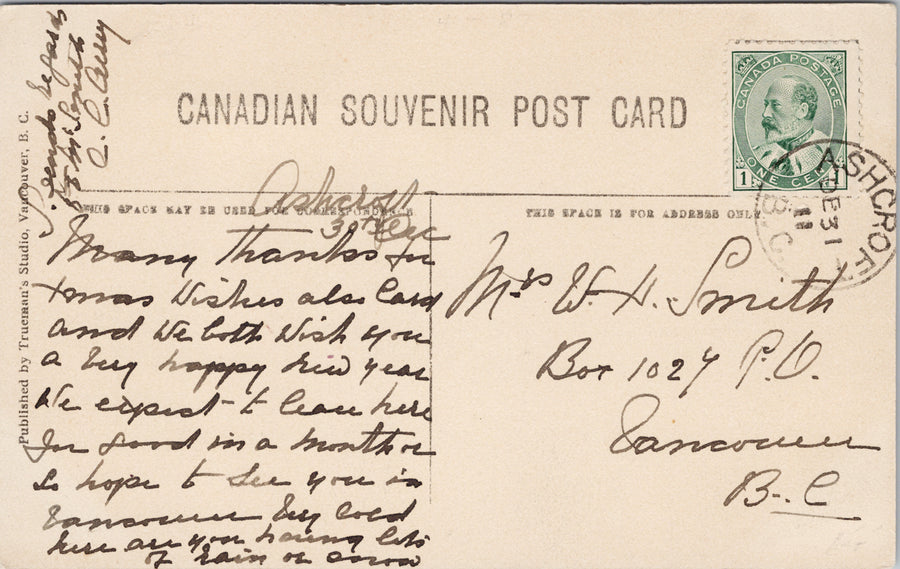 CANADIAN SOUVENIR POST CARD
CANADA POSTAGE
ONE CENT
1
ASHCROFT
DE 31
11
B.C.
THIS SPACE MAY BE USED FOR CORRESPONDENCE
THIS SPACE IS FOR ADDRESS ONLY
Published by Trueman's Studio, Vancouver, B. C.
Ashcroft
30th Dec
Many thanks for
Xmas Wishes also Card
and We both Wish you
a Very happy New year
We expect to leave here
for good in a month or
so hope to See you in
Vancouver Very Cold
here are you having lots
of rain or snow
Kinds Regards
to Mr Smith
Mrs W. H. Smith
Box 1027 P.O.
Vancouver
B.C